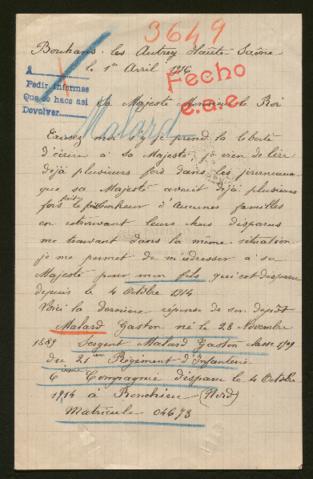 3649
Bouhans-les Autrey Haute Saône
le 1er Avril 1916
Fecho
e.e.e.
A
Pedir informes
Que se hace así
Devolver
Sa Majesté le Roi
Malard
Excusez moi si je prend la liberté
d'écrire à Sa Majesté, je vien de lire
déjà plusieurs fois dans les journeaux
que sa Majesté avait déjà plusieurs
fois fait le bonheur d'aucunes familles
en retrouvant leurs chers disparus
me trouvant dans la même situation
je me permet de m'adresser à sa
Majesté pour mon fils qui est disparu
depuis le 4 Octobre 1914
Voici la dernière réponse de son depôt
Malard Gaston né le 28 Novembre
1889 Sergent Malard Gaston classe 1909
du 21me Régiment d'Infanterie
6eme Compagnie disparu le 4 Octobre
1914 à (Nord)
Matricule 04673